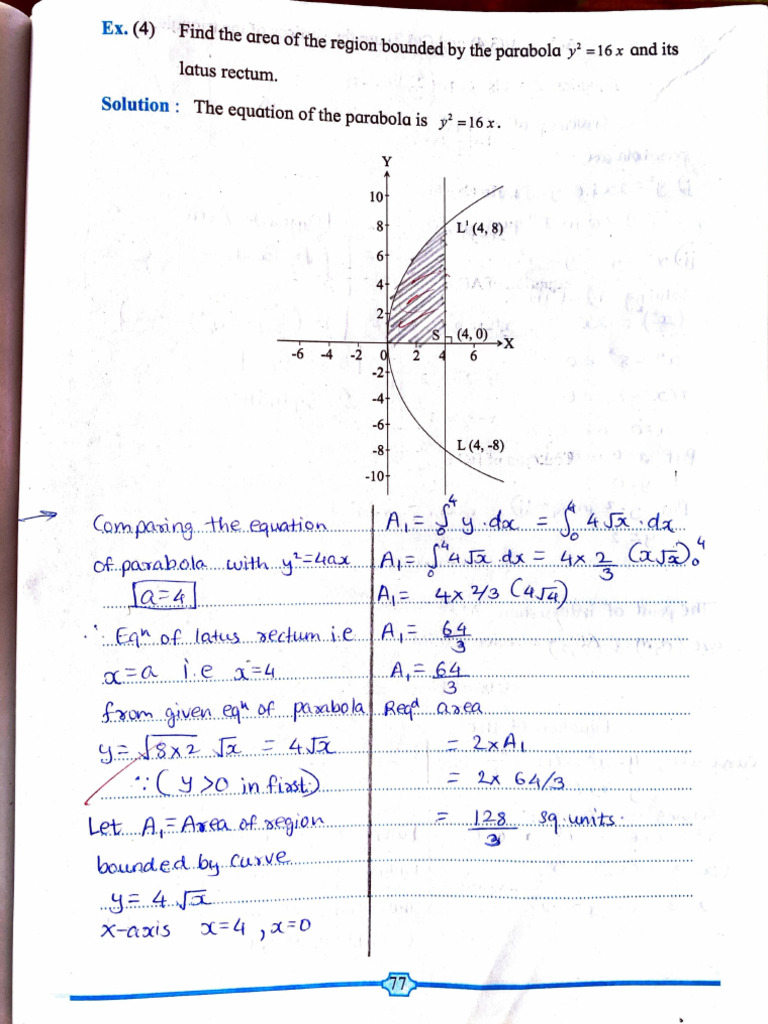 Ex. (4) Find the area of the region bounded by the parabola y² = 16 x and its
latus rectum.
Solution : The equation of the parabola is y² = 16 x.
Y
10
8
6
4
2
L' (4, 8)
S (4, 0)
X
-6 -4 -2 0 2 4 6
-2
-4
-6
-8
-10
L (4, -8)
Comparing the equation
of parabola with y²=4ax
a=4
∴ Eqⁿ of latus rectum i.e
x=a i.e x=4
from given eqⁿ of parabola
y= √8×2 √x = 4√x
∵ (y>0 in first)
Let A₁=Area of region
bounded by curve
y= 4√x
x-axis x=4, x=0
A₁= ∫₀⁴ y.dx = ∫₀⁴ 4√x.dx
A₁= ∫₀⁴ 4√x dx = 4× 2/3 (x√x)₀⁴
A₁= 4× 2/3 (4√4)
A₁= 64/3
A₁= 64/3
Reqᵈ area
= 2×A₁
= 2× 64/3
= 128/3 sq.units.
77